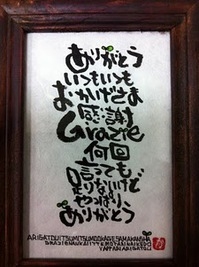 ありがとう
いつもいつも
おかげさま
感謝
Grazie
何回
言っても
足りないけど
やっぱり
ありがとう
ARIGATOUITSUMOITSUMOOKAGESAMAKANSHA
GRAZIENANKAIITTEMOTARINAIKEDO
YAPPARIARIGATOU